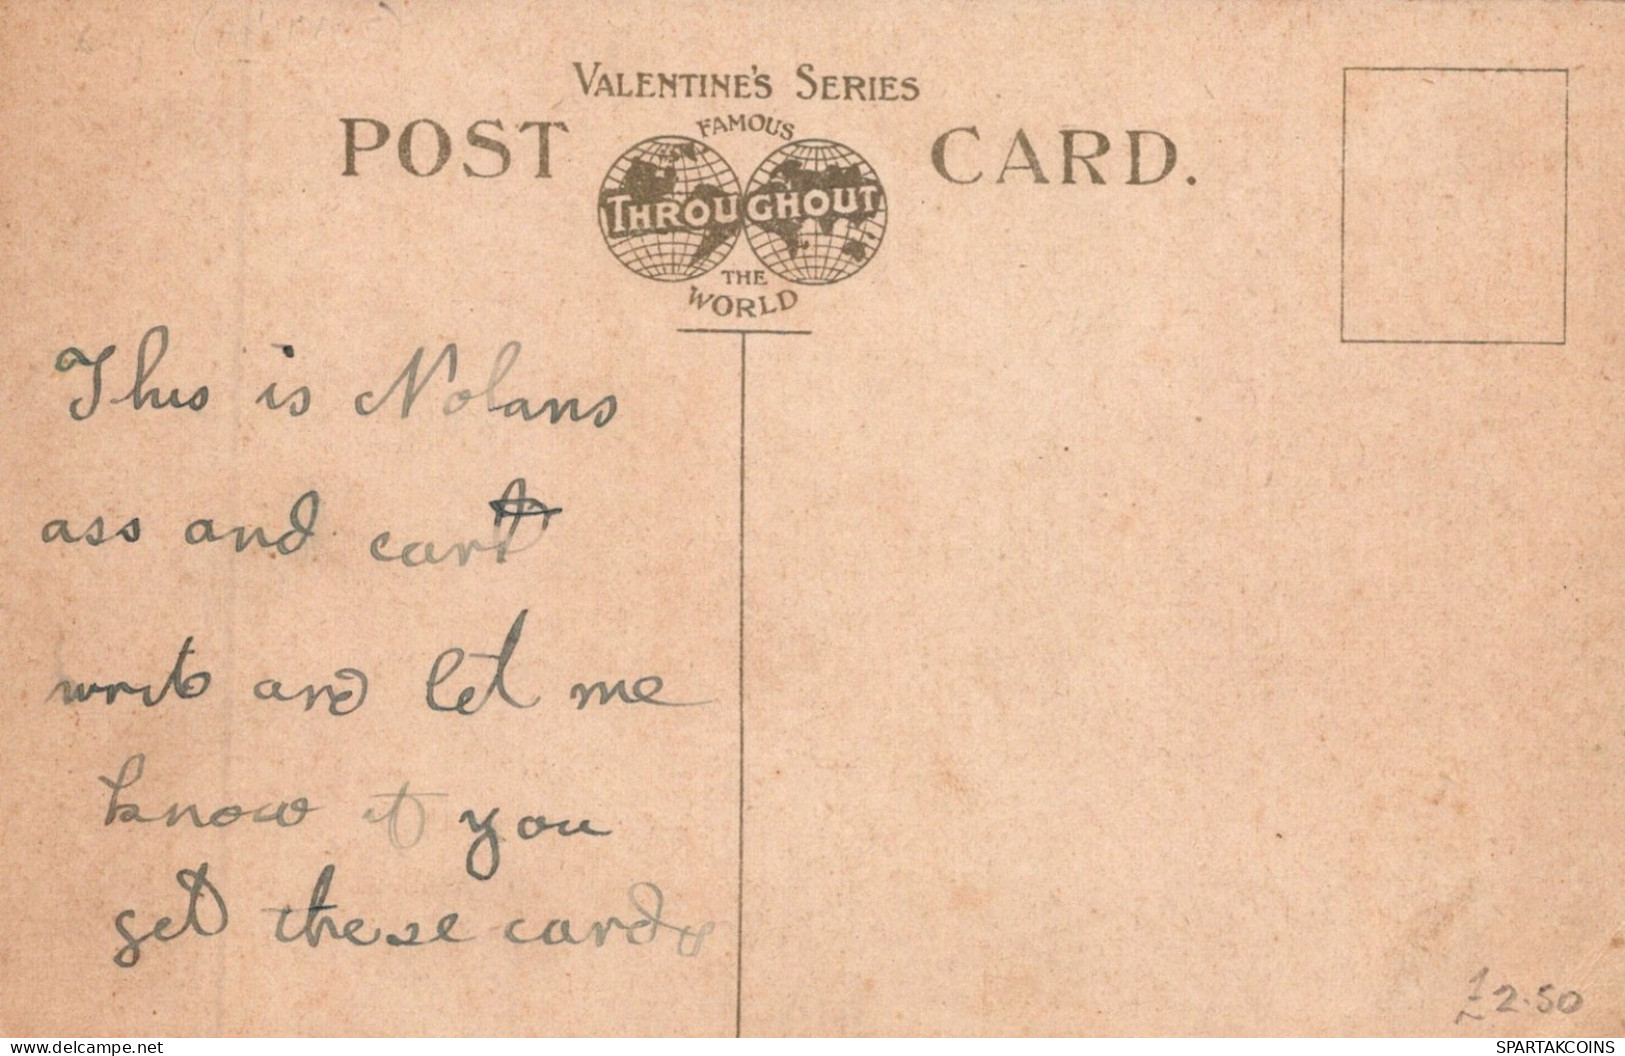 VALENTINE'S SERIES
POST CARD.
FAMOUS
THROUGHOUT
THE
WORLD
This is Nolans
ass and cart
write and let me
know if you
get these cards
£2.50
SPARTAKCOINS